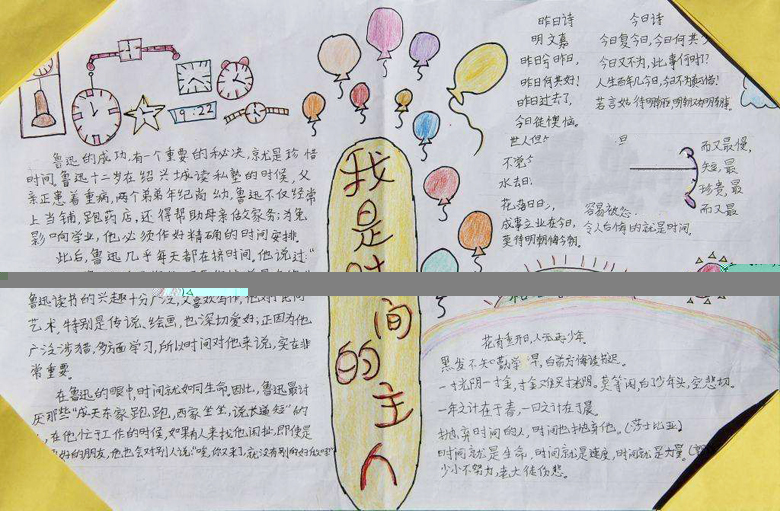 鲁迅的成功,有一个重要的秘决,就是珍惜
时间。鲁迅十二岁在绍兴城读私塾的时候,父
亲正患着重病,两个弟弟年纪尚幼,鲁迅不仅经常
上当铺,跑药店,还得帮助母亲做家务;为免
影响学业,他必须作好精确的时间安排。
此后,鲁迅几乎每天都在挤时间。他说过:“
鲁迅读书的兴趣十分广泛,又喜欢写作,他对
艺术,特别是传说、绘画,也深切爱好;正因为他
广泛涉猎,多方面学习,所以时间对他来说,实在非
常重要。
在鲁迅的眼中,时间就如同生命。因此,鲁迅最讨
厌那些“成天东家跑跑,西家坐坐,说长道短”的
,在他忙于工作的时候,如果有人来找他闲扯,即使是
好的朋友,他也会对别人说:“唉,你又来了,就没有别的好
9:22
我是时间的主人
昨日诗
明 文嘉
昨日兮昨日,
昨日何其好!
昨日过去了,
今日徒懊恼。
世人但
不觉
水去日
花落日日,
成事立业在今日,
莫待明朝悔今朝。
今日诗
今日复今日,今日何其少
今日又不为,此事何时了?
人生百年几今日,今日不为真可惜!
若言姑待明朝至,明朝又有明朝事。
旦
而又最慢,
短,最
珍贵,最
而又最
容易被忽
令人后悔的就是时间。
花有重开日,人无再少年。
黑发不知勤学早,白首方悔读书迟。
一寸光阴一寸金,寸金难买寸光阴。莫等闲,白了少年头,空悲切。
一年之计在于春,一日之计在于晨。
抛弃时间的人,时间也抛弃他。(莎士比亚)
时间就是生命,时间就是速度,时间就是力量。(郭
少小不努力,老大徒伤悲。